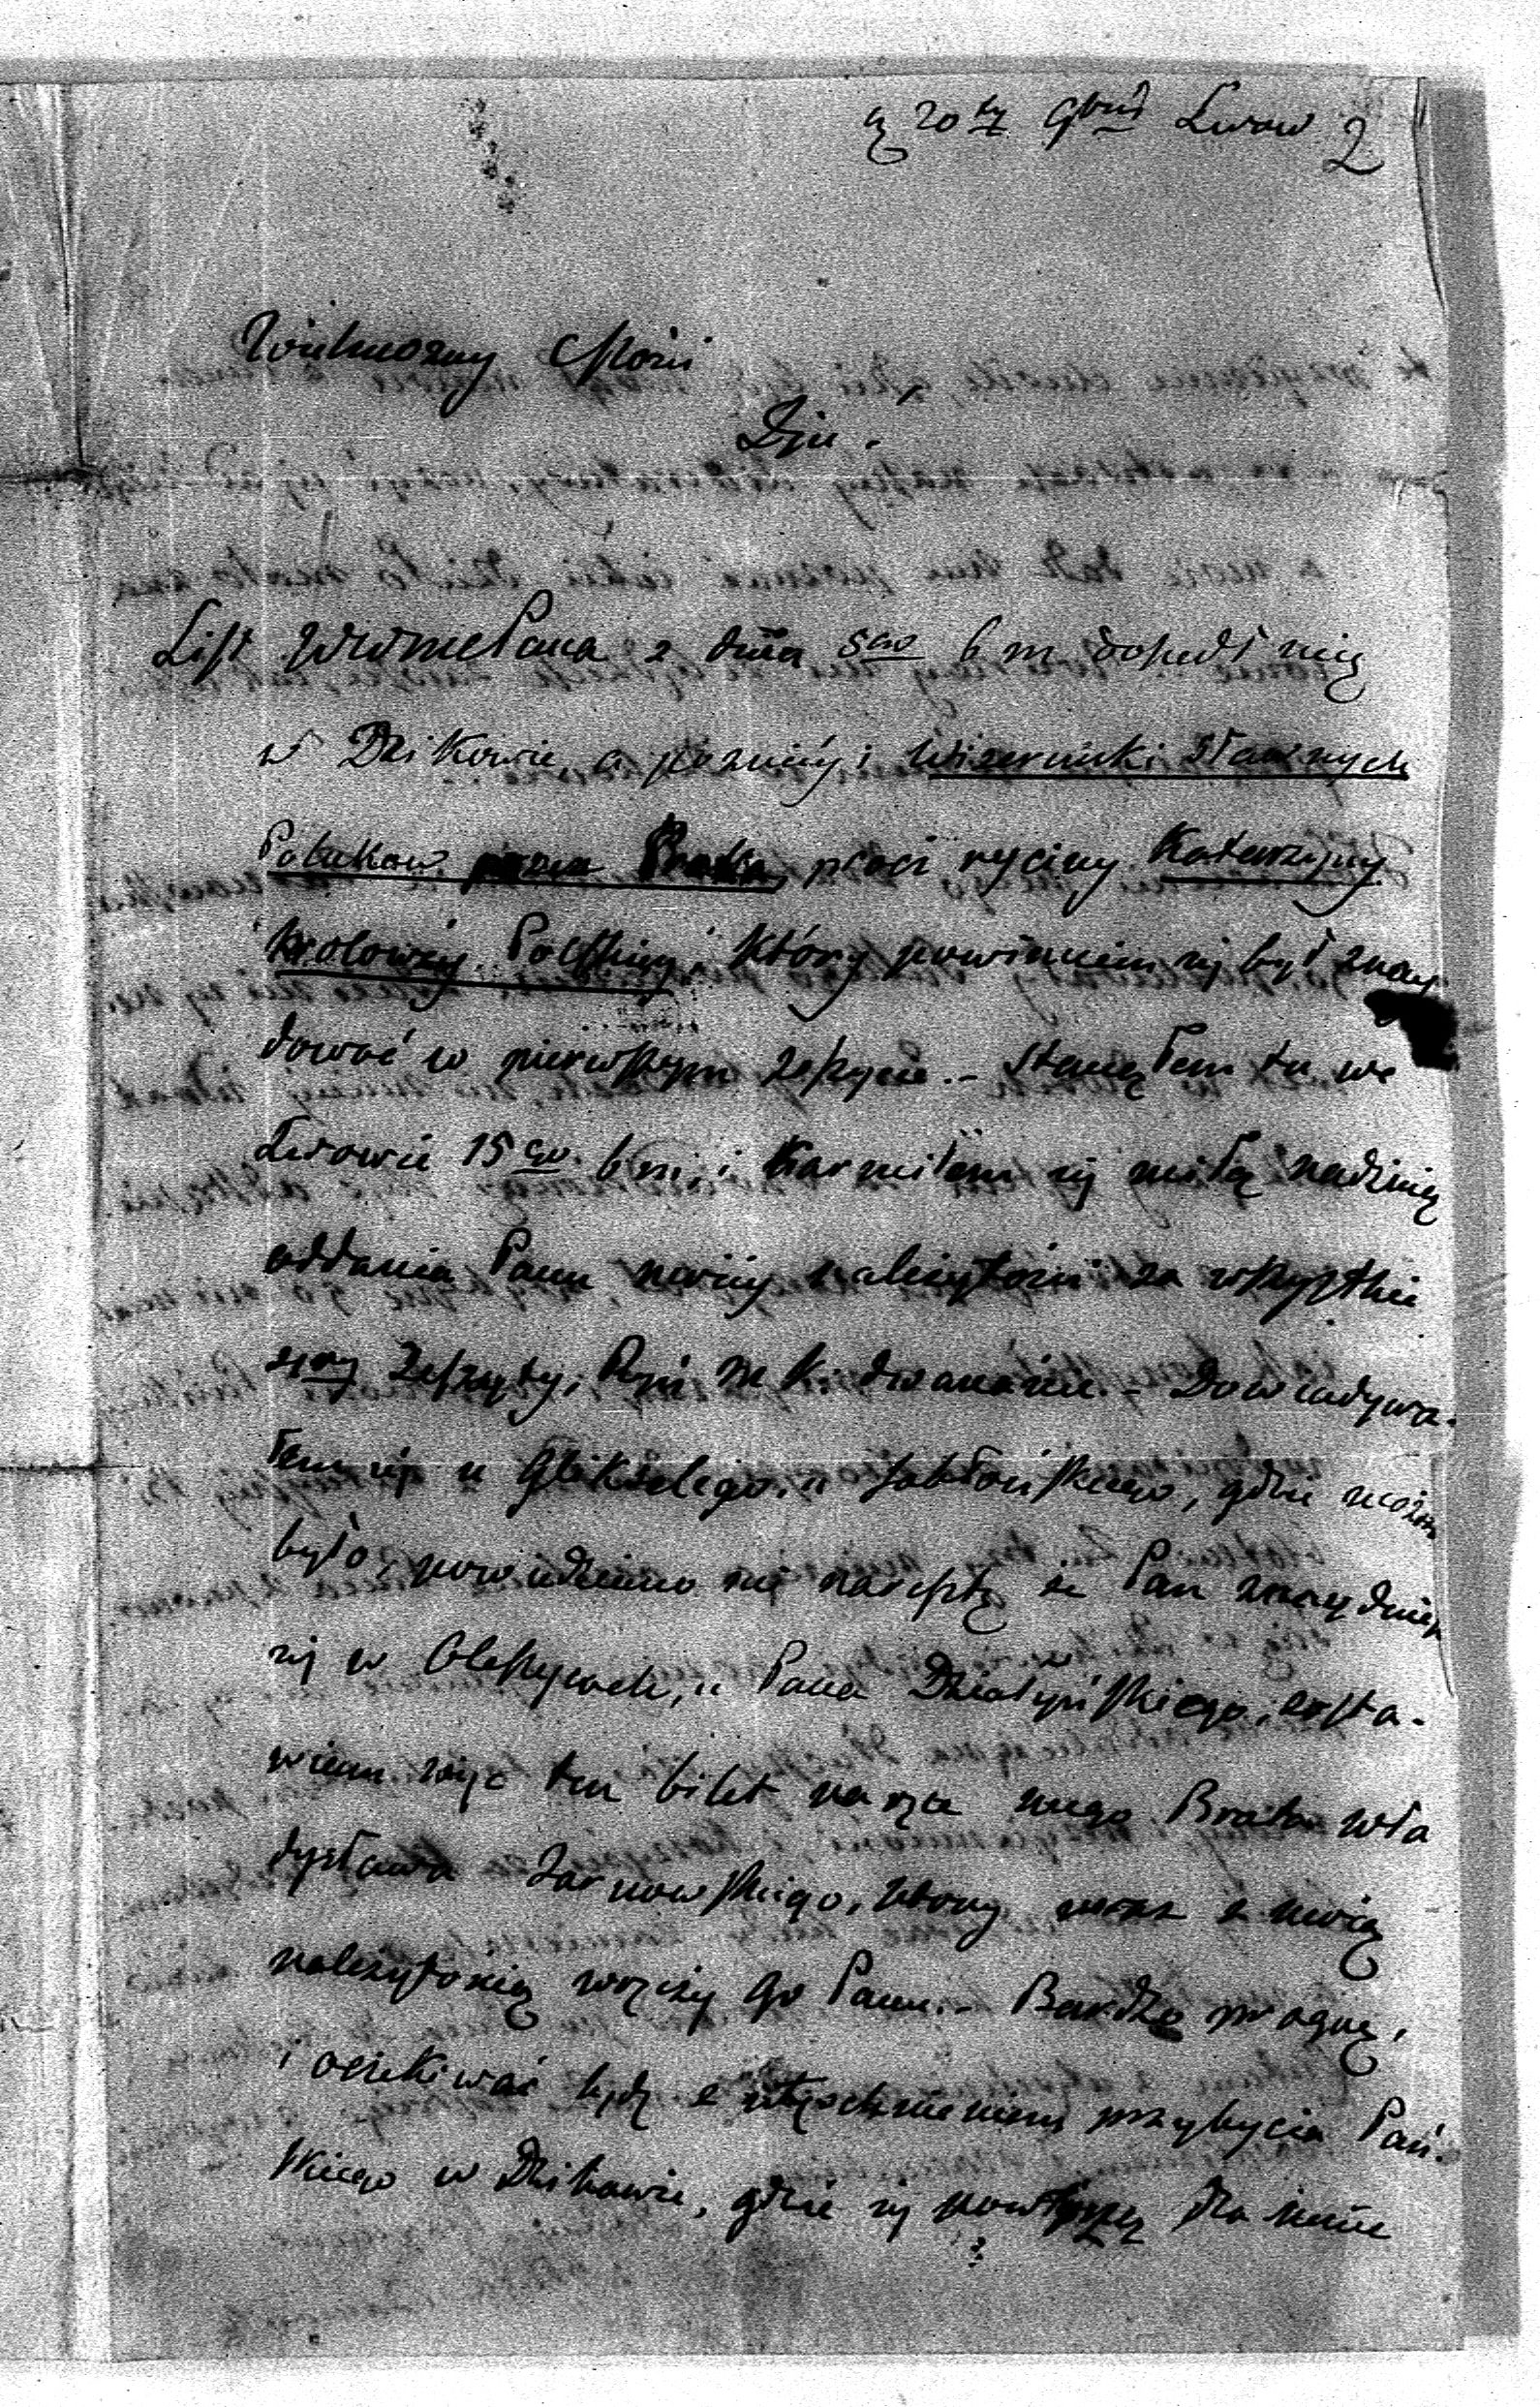 20 9bris Lwow 2
Wielmozny Mości
Dzieju.
List WWMcPana z dnia 5go b m doszedł mię
w Dzikowie, a pozniéy i Wizerunki sławnych
Polakow przez prócz ryciny Katarzyny
Krolowéy Polskiéy, która powinien się był znay
dować w pierwszym zeszycie. – Stanąłem tu we
Lwowie 15go b m, i karmiłem się miłą nadzieią
oddania Panu moiéy należytości za wszystkie
Zeszyty, dwanaście. – Dowiadywa-
łem się u i u Jabłońskiego, gdzie można
było, powiedziano mi nareszcie że Pan znayduiesz
się w Oleszycach, u Pana Działyńskiego, zosta-
wiam więc ten bilet na ręce mego Brata Wła
dysława Tarnowskiego, ktory wraz z moią
należytością wręczy go Panu. – Bardzo pragnę,
i oczekiwać będę z utęschnieniem przybycia Pań-
skiego w Dzikowie, gdzie się dla mnie